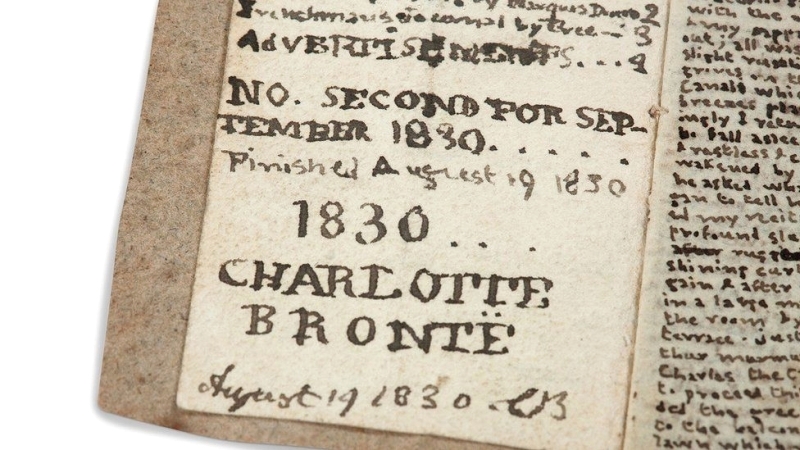 by Marquis Douro 2
Frenchman's Journal by Tree — 3
ADVERTISEMENTS. . . 4
NO. SECOND FOR SEP-
TEMBER 1830. . . . . .
Finished August 19 1830
1830 . . .
CHARLOTTE
BRONTË
August 19 1830 CB
with the
out, all was
slight
Canals whi
breezes
fall aslee
restless
wakened by
he asked wh
gan to tell
ed my recit
profound sle
after
shining curl
gain & after
in a large m
the room by
terrace. Just
thus murmu
Charles the C
to proceed thi
ded the gree
to the balcon
lawn which